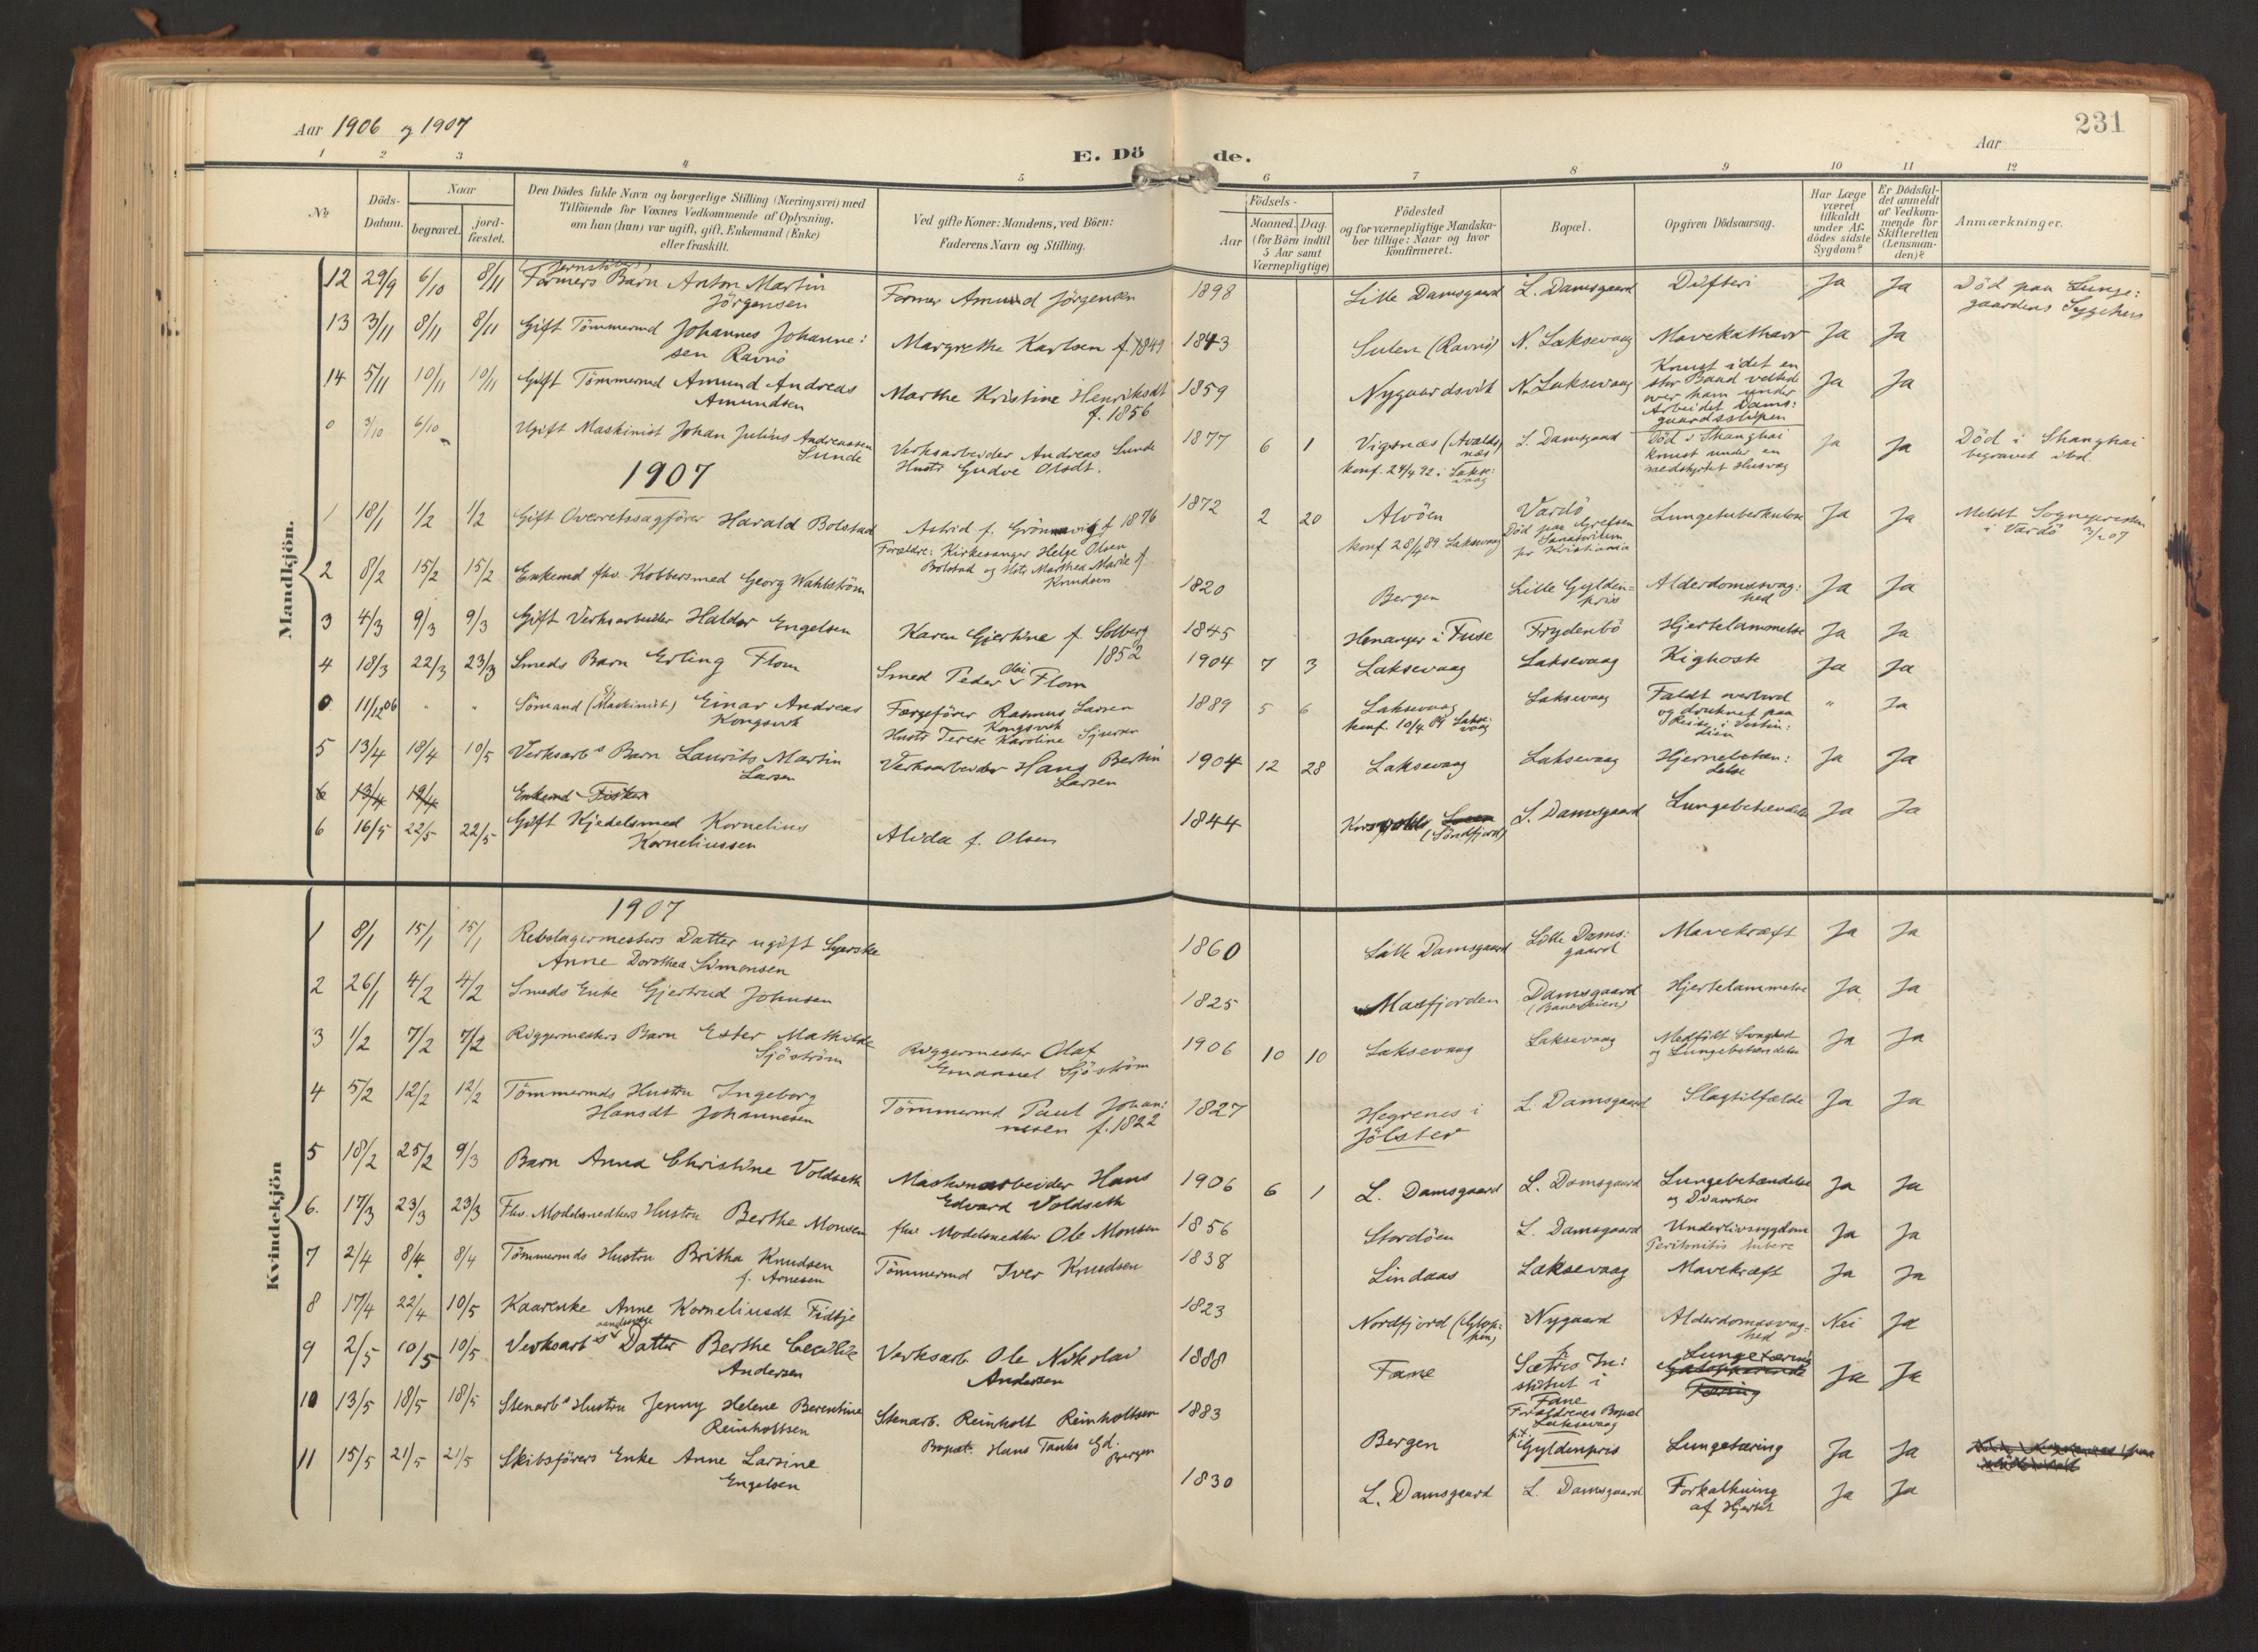 Aar 1906 og 1907
231
Aar
E. Döde.
1 2 3 4 5 6 7 8 9 10 11 12
No
Döds-Datum.
Naar
begravet.
jord-fæstet.
Den Dödes fulde Navn og borgerlige Stilling (Næringsvei) med
Tilföiende for Voxnes Vedkommende af Oplysning,
om han (hun) var ugift, gift, Enkemand (Enke)
eller fraskilt.
Ved gifte Koner: Mandens, ved Börn:
Faderens Navn og Stilling.
Födsels-
Aar
Maaned. Dag.
(for Börn indtil
5 Aar samt
Værnepligtige)
Födested
og for værnepligtige Mandska-
ber tillige: Naar og hvor
konfirmeret.
Bopæl.
Opgiven Dödsaarsag.
Har Læge
været
tilkaldt
under Af-
dödes sidste
Sygdom?
Er Dödsfal-
det anmeldt
af Vedkom-
mende for
Skifteretten
(Lensman-
den)?
Anmærkninger.
Mandkjön.
12 29/9 6/10 8/11 Formers Barn Anton Martin
Jörgensen
Former Amund Jörgensen 1898 Lille Damsgaard L. Damsgaard Difteri Ja Ja Död paa Lunge:
gaardens Sygehus
13 3/11 8/11 8/11 Gift Tömmermd Johannes Johanne:
sen Ravnö
Margrethe Karlsen f. 1849 1843 Sulen (Ravnö) N. Laksevaag Mavekatharr Ja Ja
14 5/11 10/11 10/11 Gift Tömmermd Amund Andreas
Amundsen
Marthe Kristine Henriksdt
f. 1856
1859 Nygaardsvik N. Laksevaag Knust idet en
stor Baad veltede
over ham under
Arbeidet Dams:
gaardsslippen
Ja Ja
0 3/10 6/10 Ugift Maskinist Johan Julius Andreassen
Sunde
Verksarbeider Andreas Sunde
Hustr Gudve Olsdt.
1877 6 1 Vigsnæs (Avalds
næs
konf. 24/4 92 i Lakse:
vaag
L. Damsgaard Död i Shanghai
knust under en
nedstyrtet Husvæg
Ja Ja Död i Shanghai
begravet ibd.
1907
1 18/1 1/2 1/2 Gift Overretssagförer Harald Bolstad
Astrid f. Grönnevig f 1876
Forældre: Kirkesanger Helge Olsen
Bolstad og Hstr Marthea Marie f.
Knudsen
1872 2 20 Alvöen
konf 28/4 89 Laksevaag
Vardö
Död paa Grefsen
Sanatorium
pr Kristiania
Lungetuberkulose Ja Ja Meldt Sognepresten
i Vardö 3/2 07
2 8/2 15/2 15/2 Enkemd fhv. Kobbersmed Georg Wahlström
1820 Bergen Lille Gylden=
pris
Alderdomssvag:
hed
Ja Ja
3 4/3 9/3 9/3 Gift Verksarbeider Haldor Engelsen
Karen Gjertine f. Solberg
1852
1845 Henanger i Fuse Frydenbö Hjertelammelse Ja Ja
4 18/3 22/3 23/3 Smeds Barn Erling Flom
Smed Peder Olai Flom
1904 7 3 Laksevaag Laksevaag Kighoste Ja Ja
0 11/12 06 " " Sömand (Maskinist) Einar Andreas
Kongsvik
Færgeförer Rasmus Larsen
Kongsvik
Hustr Terese Karoline
1889 5 6 Laksevaag
konf. 10/4 Lakse:
vaag
Laksevaag Faldt overbord
og druknet paa
Reise i Vestin:
dien
" Ja
5 13/4 18/4 10/5 Verksarbs Barn Laurits Martin
Larsen
Verksarbeider Hans Bertin
Larsen
1904 12 28 Laksevaag Laksevaag Hjernebetæn:
delse
Ja Ja
6 13/4 19/4 Enkemd Fisker
6 16/5 22/5 22/5 Gift Kjedelsmed Kornelius
Korneliussen
Alida f. Olsen
1844 (Söndfjord) L. Damsgaard Lungebetændelse Ja Ja
Kvindekjön
1907
1 8/1 15/1 15/1 Rebslagermesters Datter ugift Syerske
Anne Dorothea Simonsen
1860 Lille Damsgaard Lille Dams:
gaard
Mavekræft Ja Ja
2 26/1 4/2 4/2 Smeds Enke Gjertrud Johnsen
1825 Masfjorden Damsgaard
(Baneveien)
Hjertelammelse Ja Ja
3 1/2 7/2 7/2 Riggermesters Barn Ester Mathilde
Sjöström
Riggermester Olaf
Emanuel Sjöström
1906 10 10 Laksevaag Laksevaag Medfödt Svaghed
og Lungebetændelse
Ja Ja
4 5/2 12/2 12/2 Tömmermds Hustru Ingeborg
Hansdt Johannesen
Tömmermd Paul Johan:
nesen f. 1822
1827 Hegrenes i
Jölster
L. Damsgaard Slagtilfælde Ja Ja
5 18/2 25/2 9/3 Barn Anna Christine Voldseth
Maskinarbeider Hans
Edvard Voldseth
1906 6 1 L. Damsgaard L. Damsgaard Lungebetændelse
og Diarrhoe
Ja Ja
6. 17/3 23/3 23/3 Fhv. Modelsnedkers Hustru Berthe Monsen
fhv Modelsnedker Ole Monsen
1856 Stordöen L. Damsgaard Underlivssygdom
Peritonitis tuberc
Ja Ja
7 2/4 8/4 8/4 Tömmermds Hustru Britha Knudsen
f. Arnesen
Tömmermd Iver Knudsen
1838 Lindaas Laksevaag Mavekræft Ja Ja
8 17/4 22/4 10/5 Kaarenke Anne Korneliusdt Fidtje
1823 Nordfjord (Glop:
pen)
Nygaard Alderdomssvag=
hed
Nei Ja
9 2/5 10/5 10/5 Verksarbs aandssvage Datter Berthe Cecilie
Andersen
Verksarb. Ole Nikolai
Andersen
1888 Fane Sætres In:
stitut i
Fane
Forældrenes Bopæl
Laksevaag
Lungetæring
Galopperende
Tæring
Ja Ja
10 13/5 18/5 18/5 Stenarbs Hustru Jenny Helene Berentine
Reinholtsen
Stenarb. Reinholt Reinholtsen
Bopæl: Hans Tanks Gd.
Bergen
1883 Bergen p.t.
Gyldenpris
Lungetæring Ja Ja
11 15/5 21/5 21/5 Skibsförers Enke Anne Larsine
Engelsen
1830 L. Damsgaard L. Damsgaard Forkalkning
af Hjertet
Ja Ja